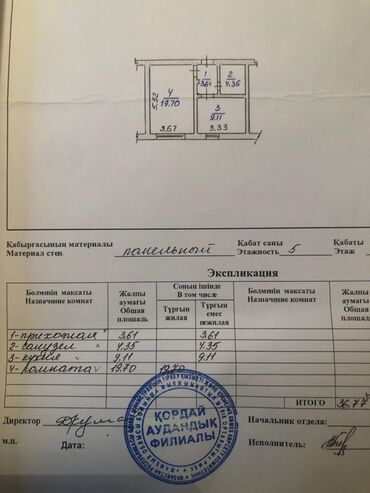 1 2
3.61 4.35
4
19.70
5.52
3
9.11
3.67 3.33
Қабырғасының материалы Қабат саны Қабаты
Материал стен панельный Этажность 5 Этаж
Экспликация
Бөлменің мақсаты Назначение комнат
Жалпы аумағы Общая площадь
Соның ішінде В том числе
Тұрғын жилая
Тұрғын емес нежилая
Бөлменің мақсаты Назначение комнат
Жалпы аумағы Общая площадь
1-прихожая 3.61 3.61
2-санузел 4.35 4.35
3-кухня 9.11 9.11
4-комната 19.70 19.70
ИТОГО 36.77
Директор Начальник отдела:
м.п. Дата: Исполнитель:
ҚОРДАЙ
АУДАНДЫҚ
ФИЛИАЛЫ